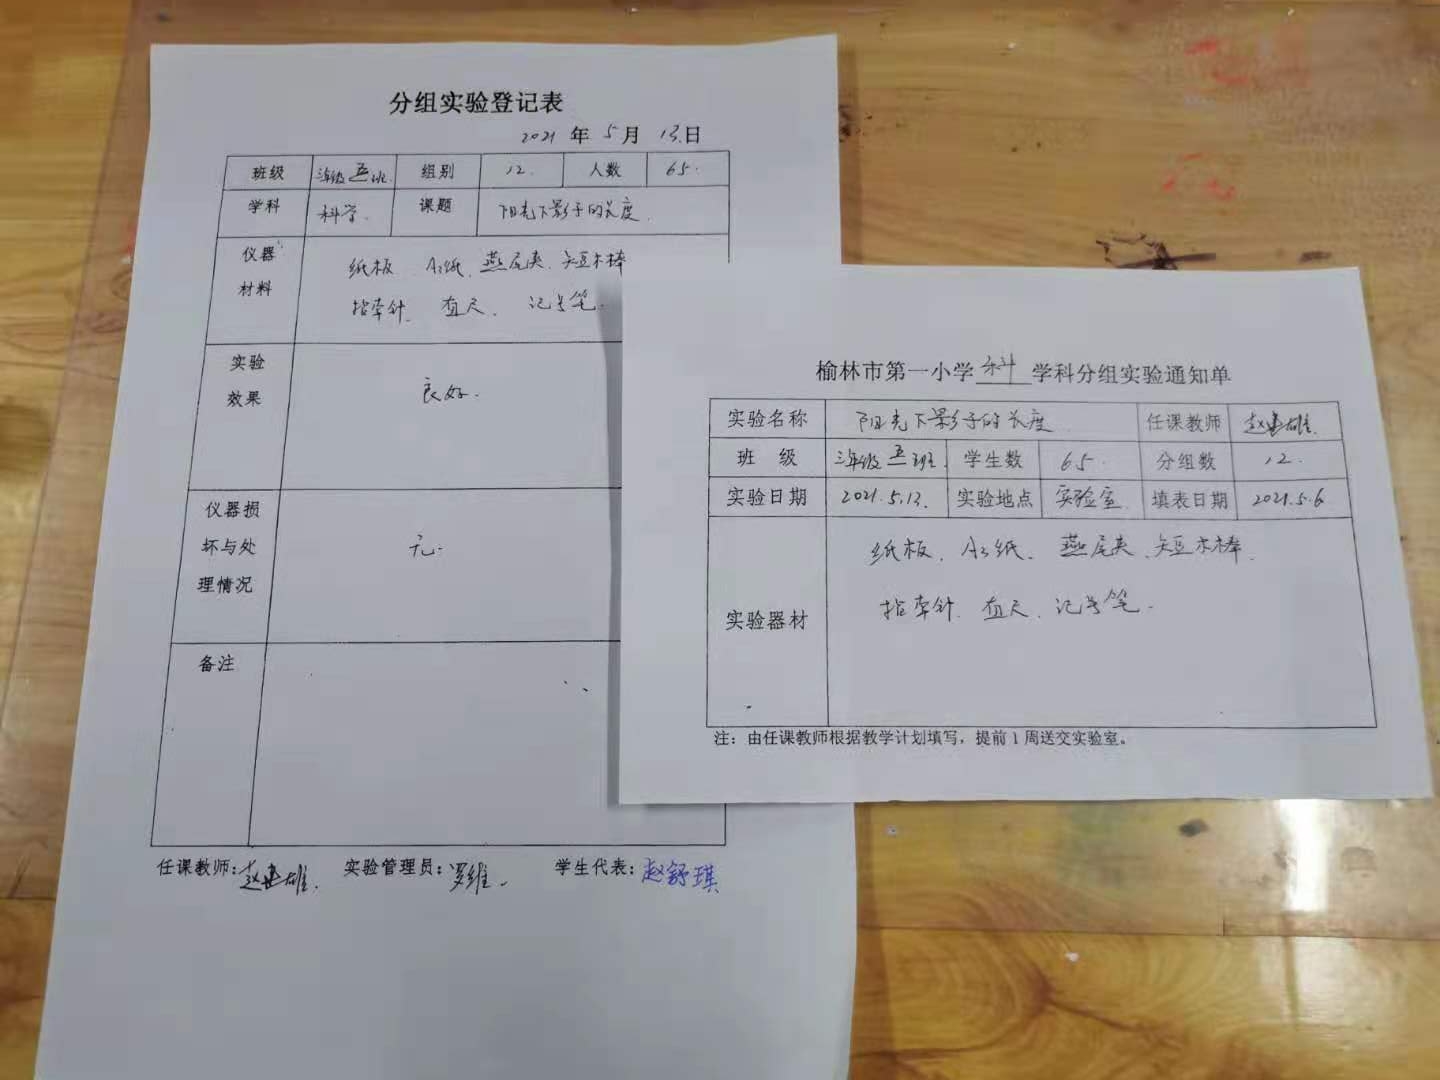 分组实验登记表
2021 年 5 月 13 日
班级 三年级五班 组别 12. 人数 65.
学科 科学. 课题 阳光下影子的长度.
仪器材料 纸板、A3纸、燕尾夹、短木棒
指南针、直尺、记号笔.
实验效果 良好.
仪器损坏与处理情况 无.
备注
任课教师:赵建雄. 实验管理员:罗维. 学生代表:赵舒琪
榆林市第一小学 科 学科分组实验通知单
实验名称 阳光下影子的长度 任课教师 赵建雄.
班 级 三年级五班. 学生数 65. 分组数 12.
实验日期 2021.5.13. 实验地点 实验室. 填表日期 2021.5.6
实验器材 纸板、A3纸、燕尾夹、短木棒、
指南针、直尺、记号笔.
注：由任课教师根据教学计划填写，提前1周送交实验室。